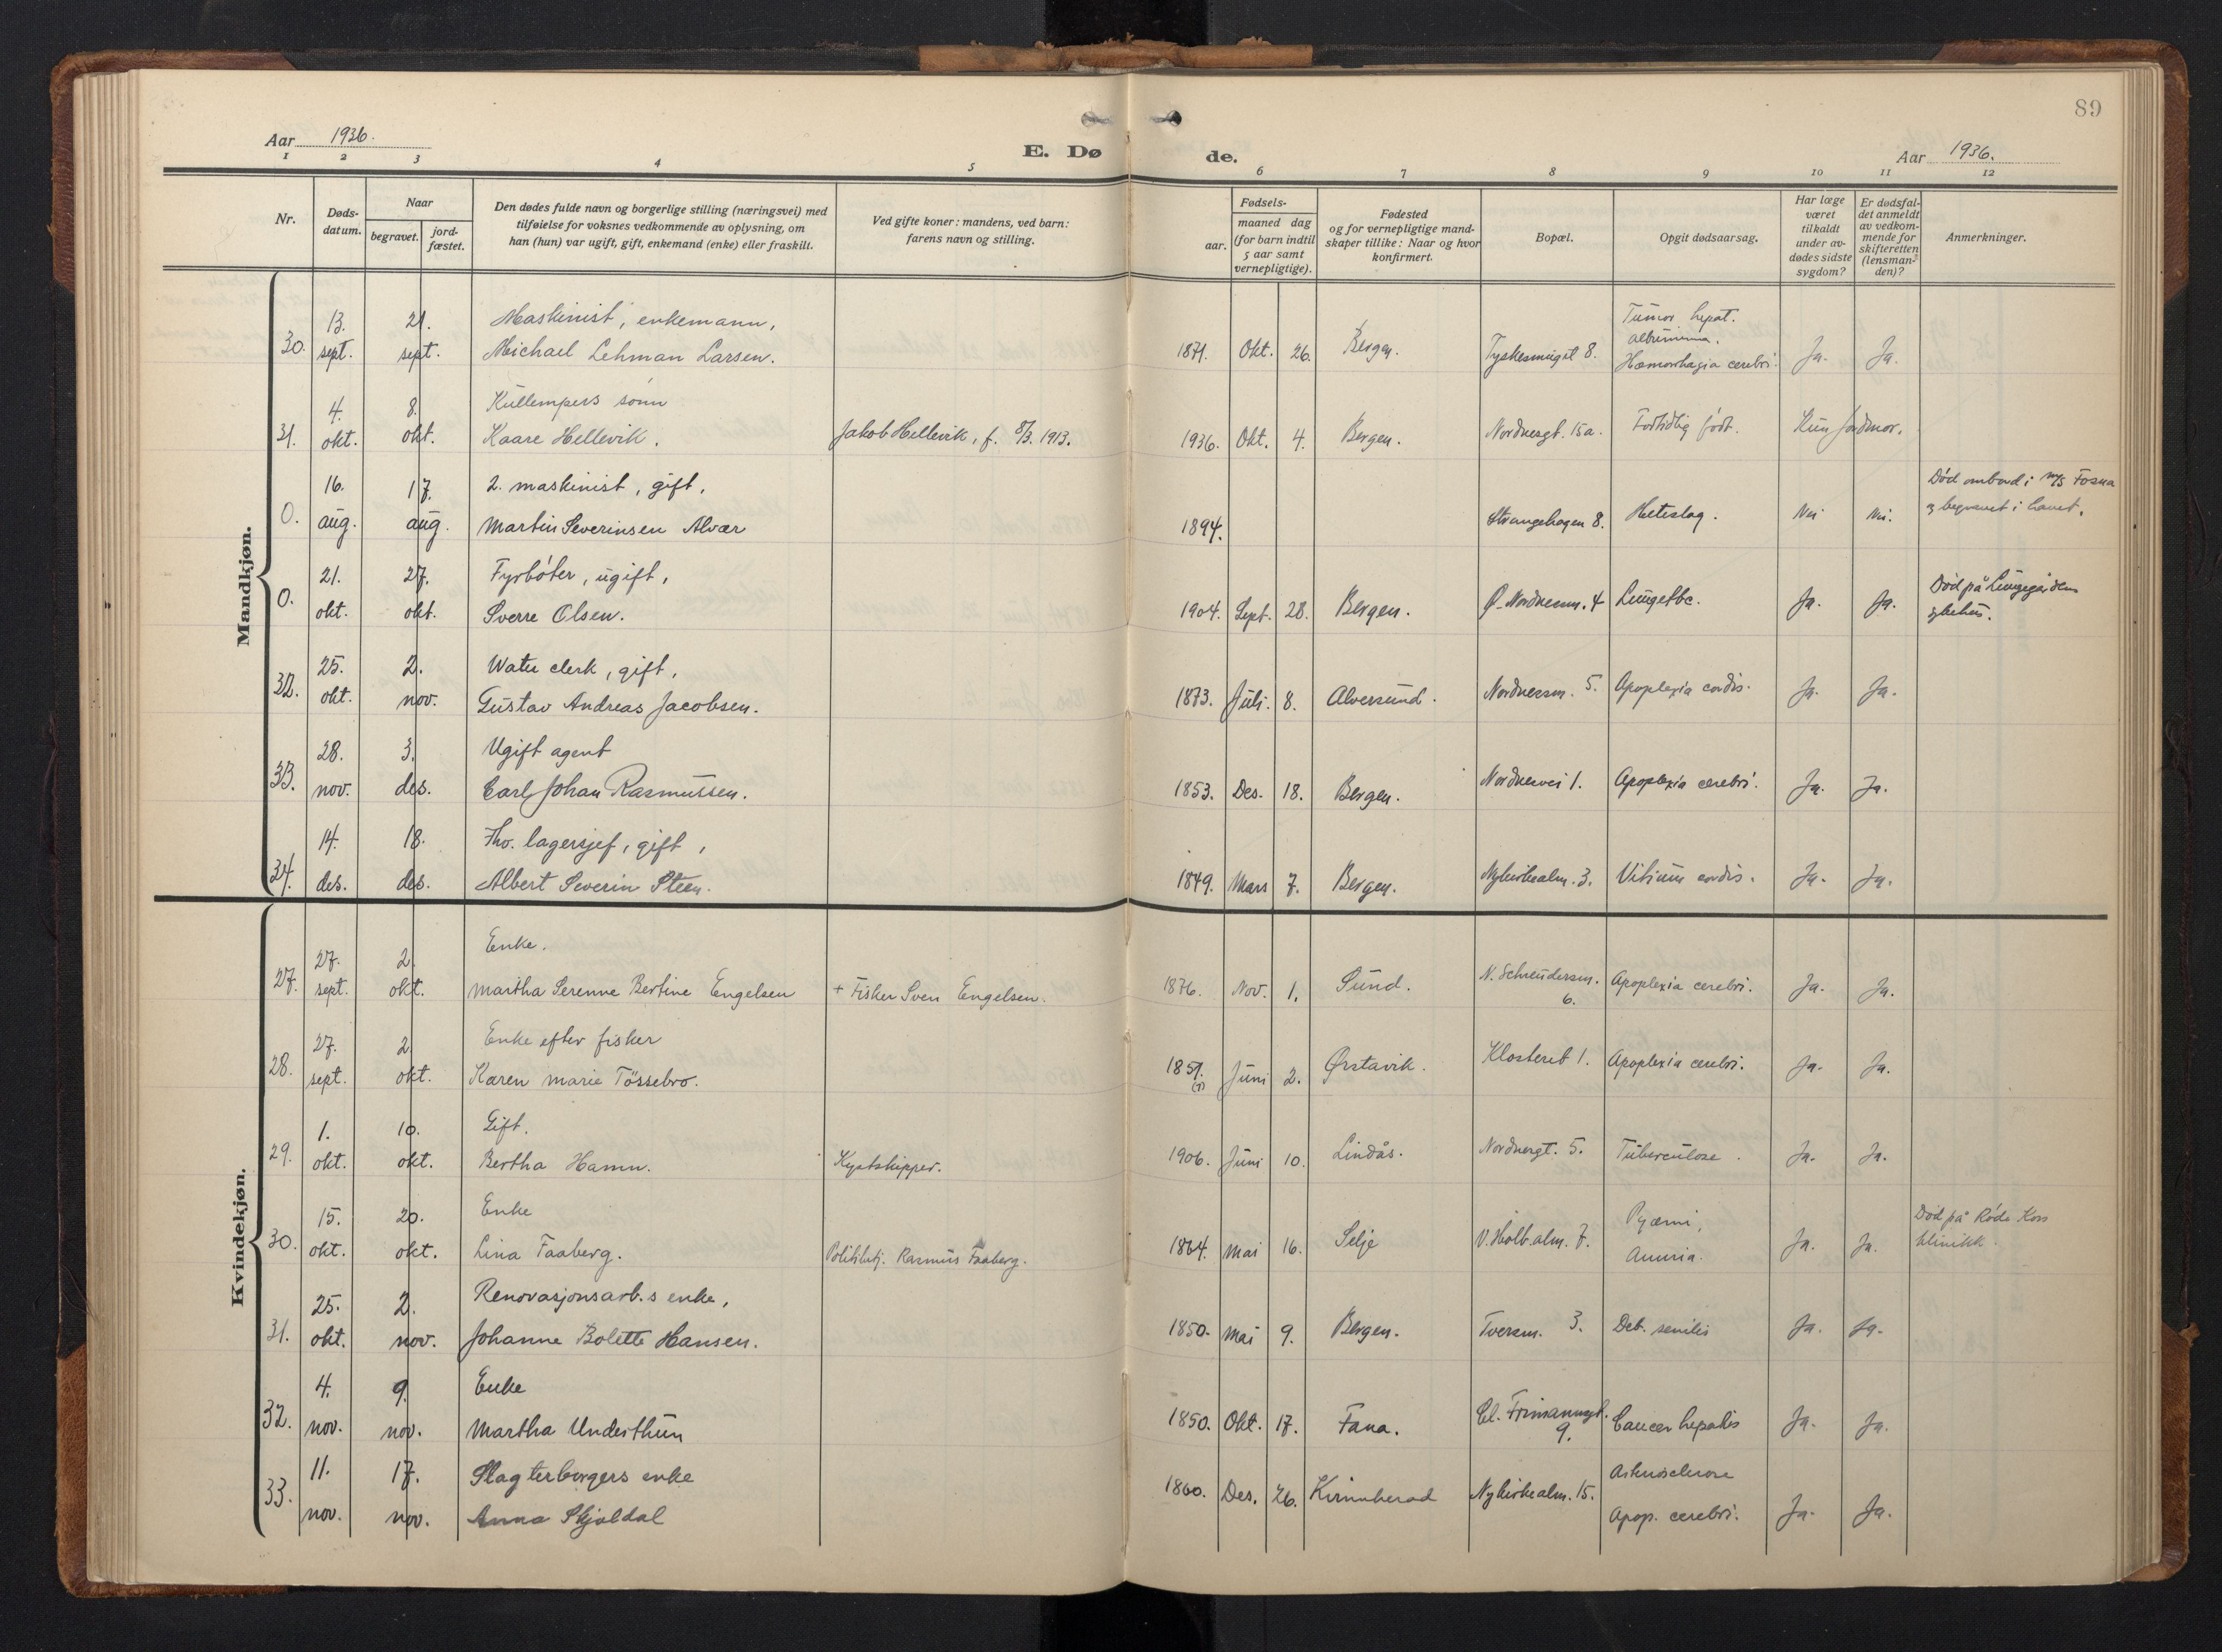 89
Aar 1936.
E. Dø de.
Aar 1936.
1 2 3 4 5 6 7 8 9 10 11 12
Nr.
Døds-
datum.
Naar
begravet.
jord-
fæstet.
Den dødes fulde navn og borgerlige stilling (næringsvei) med
tilføielse for voksnes vedkommende av oplysning, om
han (hun) var ugift, gift, enkemand (enke) eller fraskilt.
Ved gifte koner: mandens, ved barn:
farens navn og stilling.
Fødsels-
aar.
maaned dag
(for barn indtil
5 aar samt
vernepligtige).
Fødested
og for vernepligtige mand-
skaper tillike: Naar og hvor
konfirmert.
Bopæl.
Opgit dødsaarsag.
Har læge
været
tilkaldt
under av-
dødes sidste
sygdom?
Er dødsfal-
det anmeldt
av vedkom-
mende for
skifteretten
(lensman-
den)?
Anmerkninger.
Mandkjøn.
13. 21. Maskinist, enkemann, Tumor hepat.
albuminuria.
30. sept. sept. Michael Lehman Larsen. 1871. Okt. 26. Bergen. Tyskesmugt 8. Hæmorrhagia cerebri. Ja. Ja.
4. 8. Kullempers sønn
31. okt. okt. Kaare Hellevik. Jakob Hellevik, f. 8/3. 1913. 1936. Okt. 4. Bergen. Nordnesgt. 15a. Fortidlig født. Kun jordmor.
16. 17. 2. maskinist, gift, Død ombord i m/s Fosna
0. aug. aug. Martin Severinsen Alvær 1894. Strangehagen 8. Heteslag. Nei Nei. og begravet i havet.
21. 27. Fyrbøter, ugift, Død på Lungegårdens
0. okt. okt. Sverre Olsen. 1904. Sept. 28. Bergen. Ø. Nordnessm. 4 Lungetbc. Ja. Ja. sykehus.
25. 2. Water clerk, gift,
32. okt. nov. Gustav Andreas Jacobsen. 1873. Juli. 8. Alversund. Nordnessm. 5. Apoplexia cordis. Ja. Ja.
28. 3. Ugift agent
33. nov. des. Carl Johan Rasmussen. 1853. Des. 18. Bergen. Nordnesvei 1. Apoplexia cerebri. Ja. Ja.
14. 18. Fhv. lagersjef, gift,
34. des. des. Albert Severin Steen. 1849. Mars 7. Bergen. Nykirkealm. 3. Vitium cordis. Ja. Ja.
Kvindekjøn.
27. 2. Enke.
27. sept. okt. Martha Serenne Bertine Engelsen + Fisker Sven Engelsen. 1876. Nov. 1. Sund. N. Schreudersm. 6. Apoplexia cerebri. Ja. Ja.
27. 2. Enke efter fisker
28. sept. okt. Karen Marie Tössebro. 1851. (7) Juni 2. Ørstavik. Klosteret 1. Apoplexia cerebri. Ja. Ja.
1. 10. Gift.
29. okt. okt. Bertha Hamn. Kystskipper. 1906. Juni 10. Lindås. Nordnesgt. 5. Tuberculose. Ja. Ja.
15. 20. Enke Pyæmi, Død på Røde Kors
30. okt. okt. Lina Faaberg. Politibetj. Rasmus Faaberg. 1864. Mai 16. Selje V. Holb.alm. 7. Anuria. Ja. Ja. klinikk.
25. 2. Renovasjonsarb.s enke,
31. okt. nov. Johanne Bolette Hansen. 1850. Mai 9. Bergen. Tversm. 3. Deb. senilis Ja. Ja.
4. 9. Enke
32. nov. nov. Martha Understhun 1850. Okt. 17. Fana. Cl. Frimannsgt. 9. Cancer hepatis Ja. Ja.
11. 17. Slagterborgers enke Arteriosclerose
33. nov. nov. Anna Skjoldal 1860. Des. 26. Kvinnherad Nykirkealm. 15. Apop. cerebri. Ja. Ja.